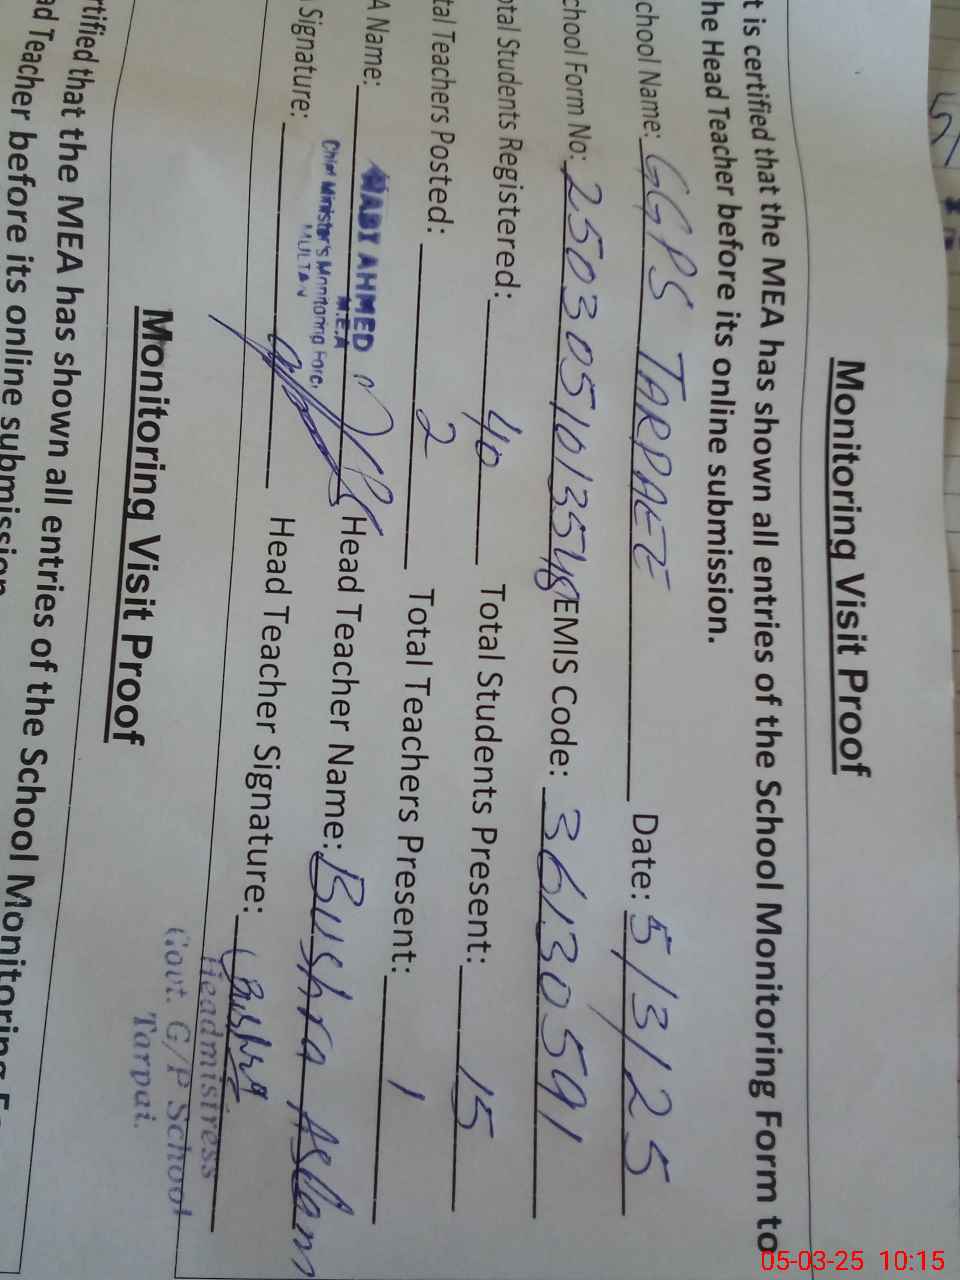 Monitoring Visit Proof
t is certified that the MEA has shown all entries of the School Monitoring Form to
he Head Teacher before its online submission.
chool Name: GGPS TARPAEE Date: 5/3/25
chool Form No: EMIS Code: 36130591
otal Students Registered: 40 Total Students Present: 15
tal Teachers Posted: 2 Total Teachers Present: 1
A Name: AHMED Head Teacher Name: Bushra Aslam
M.E.A
Chief Minister's Monitoring Force,
MULTAN
Signature: Head Teacher Signature: Bushra
Headmistress
Govt. G/P School
Tarpai.
Monitoring Visit Proof
rtified that the MEA has shown all entries of the School Monitoring Fo
ad Teacher before its online submission
05-03-25 10:15